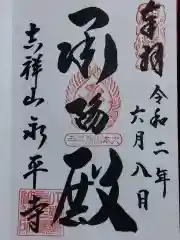 奉拝
令和二年六月八日
承陽殿
吉祥山永平寺